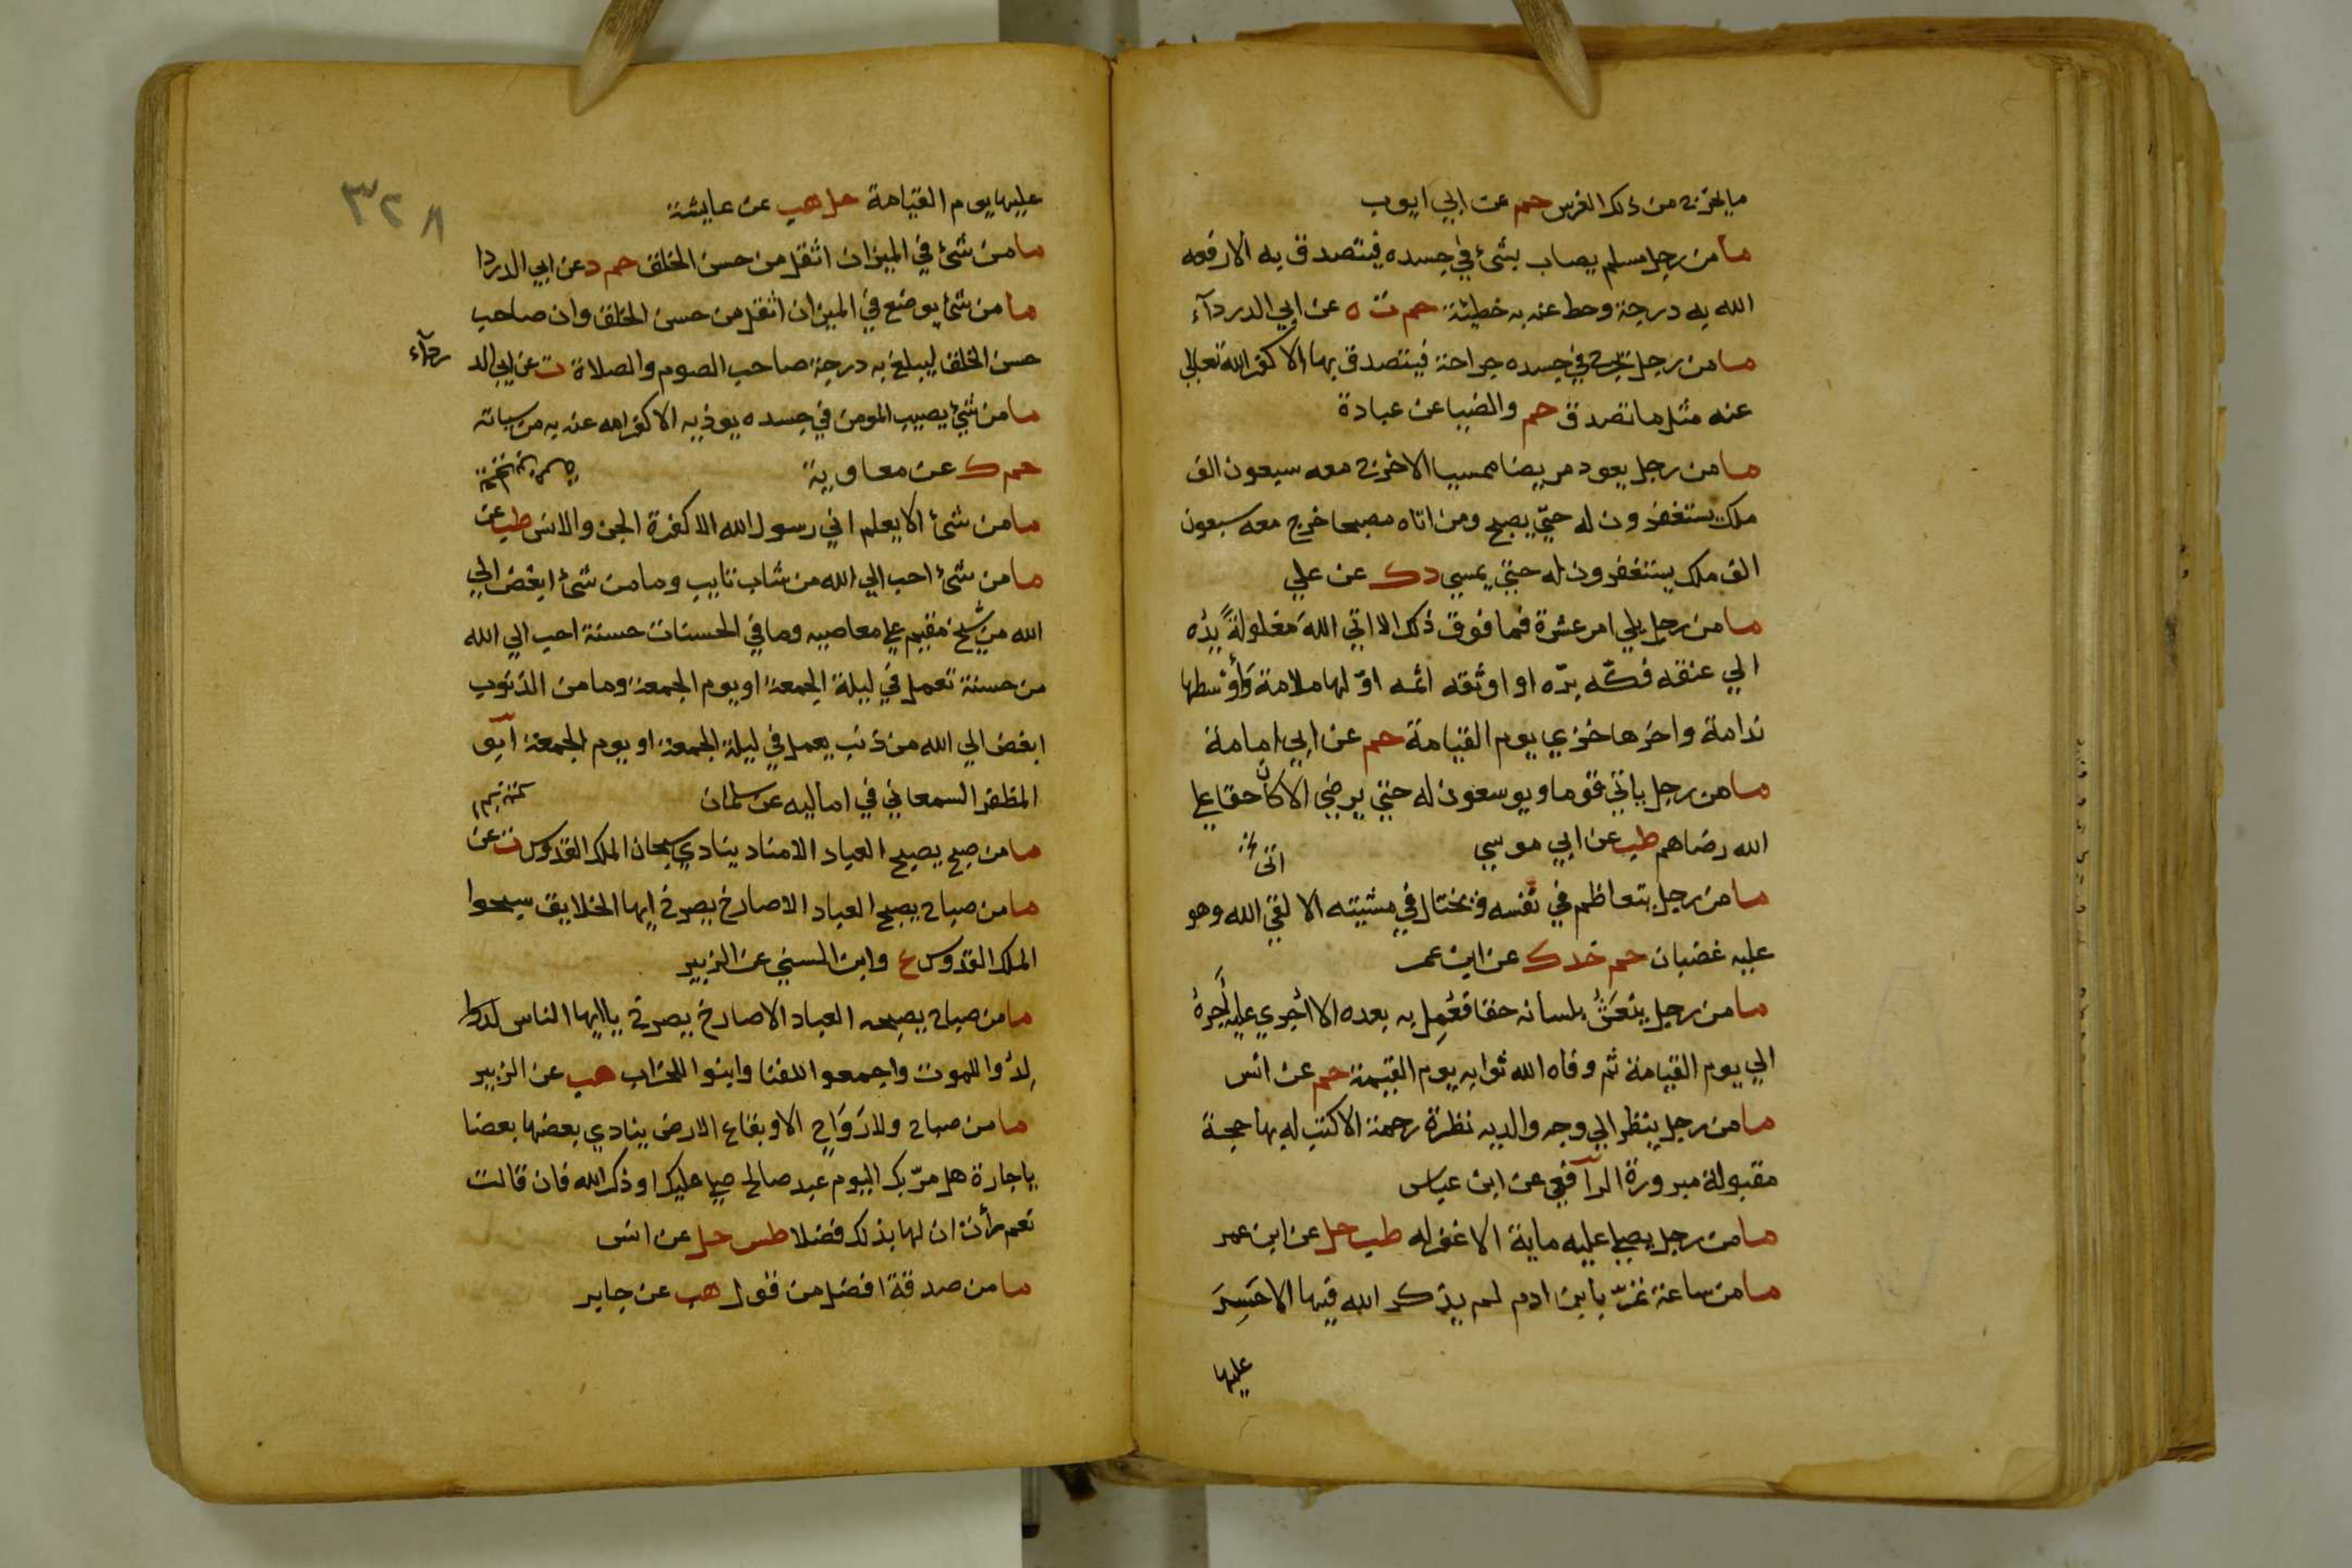 ما يخرج من ذلك الغرس حم عن ابي ايوب
ما من رجل مسلم يصاب بشئ في جسده فيتصدق به الا رفعه
الله به درجة وحط عنه به خطيئة حم ت ه عن ابي الدردآء
ما من رجل يجرح في جسده جراحة فيتصدق بها الا كفر الله تعالي
عنه مثل ما تصدق حم والضيا عن عبادة
ما من رجل يعود مريضا ممسيا الا خرج معه سبعون الف
ملك يستغفرون له حتي يصبح ومن اتاه مصبحا خرج معه سبعون
الف ملك يستغفرون له حتي يمسي د ك عن علي
ما من رجل يلي امر عشرة فما فوق ذلك الا اتي الله مغلولةً يدُه
الي عنقه فكّه برّه او اوثقه اثمه اوّلها ملامة وَأوْسطها
ندامة واخرها خزي يوم القيامة حم عن ابي امامة
ما من رجل ياتي قوما ويوسعون له حتي يرضي الا كان حقا علي
الله رضاهم طب عن ابي موسي
ما من رجل يتعاظم في نفسه ويختال في مشيته الا لقي الله وهو
عليه غضبان حم خد ك عن ابن عمر
ما من رجل ينعَشُ بلسانه حقا فعُمِل به بعده الا اُجري عليه اَجرهُ
الي يوم القيامة ثم وفاه الله ثوابه يوم القيمة حم عن انس
ما من رجل ينظر الي وجه والديه نظرة رحمة الا كتب له بها حجة
مقبولة مبرورة الرآفعي عن ابن عباس
ما من رجل يصلي عليه ماية الا غفر له طب حل عن ابن عمر
ما من ساعة تمرّ بابن ادم لم يذكر الله فيها الا حَسِرَ
عليها
٣٢٨
عليها يوم القيامة حل هب عن عايشة
ما من شئ في الميزان اثقل من حسن الخلق حم د عن ابي الدردا
ما من شئ يوضع في الميزان اثقل من حسن الخلق وان صاحب
حسن الخلق ليبلغ به درجة صاحب الصوم والصلاة ت عن ابي الد
ردآء
ما من شئ يصيب المومن في جسده يوذيه الا كفر الله عنه به من سياته
حم ك عن معاوية
ما من شئ الا يعلم اني رسول الله الا كفرة الجن والانس طب عن
ما من شئ احب الي الله من شاب تايب وما من شئ ابغض الي
الله من شيخ مقيم علي معاصيه وما في الحسنات حسنة احب الي الله
من حسنة تعمل في ليلة الجمعة او يوم الجمعة وما من الذنوب
ابغض الي الله من ذنب يعمل في ليلة الجمعة او يوم الجمعة ابو
المظفر السمعاني في اماليه عن سلمان
ما من صبح يصبح العباد الا مناد ينادي سبحان الملك القدوس ت عن
ما من صباح يصبح العباد الا صارخ يصرخ ايها الخلايق سبحوا
الملك القدوس ع وابن السني عن الزبير
ما من صباح يصبحه العباد الا صارخ يصرخ يا ايها الناس
لِدُوا للموت واجمعوا للفنا وابنوا للخراب هب عن الزبير
ما من صباح ولا رَوَاحٍ الا وبقاع الارض ينادي بعضها بعضا
يا جارة هل مرّ بك اليوم عبد صالح صلي عليك او ذكر الله فان قالت
نعم رأت ان لها بذلك فضلا طس حل عن انس
ما من صدقة افضل من قول هب عن جابر